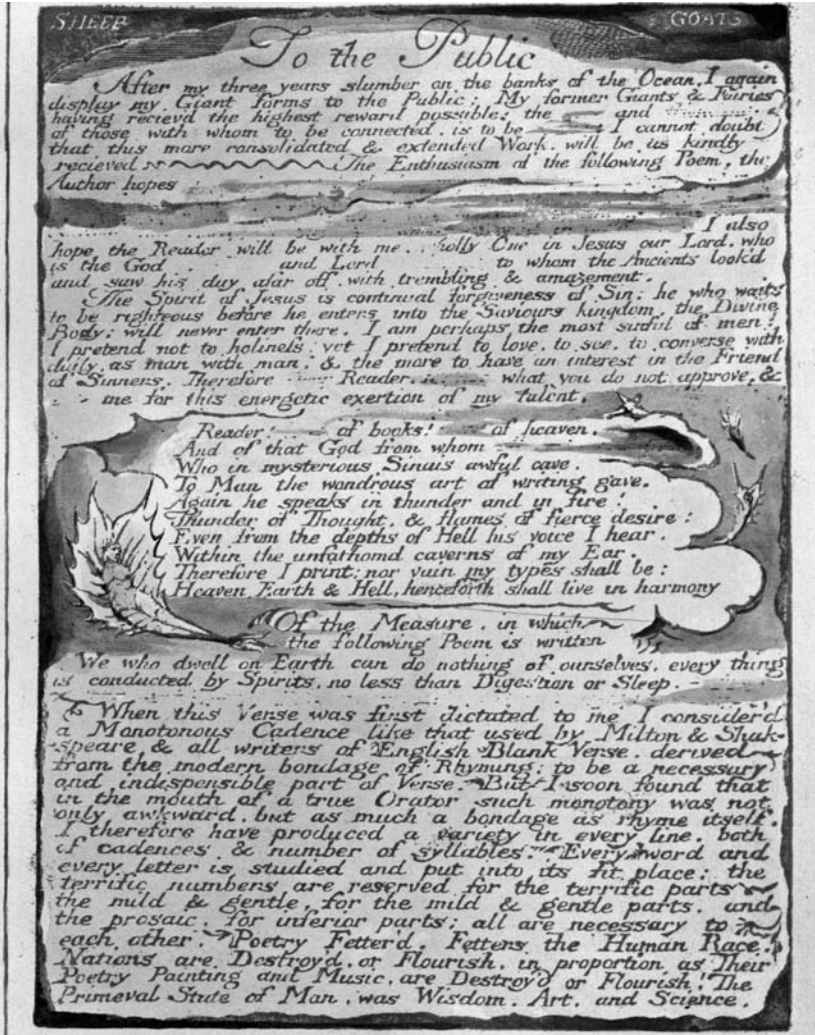 SHEEP
GOATS
To the Public
After my three years slumber on the banks of the Ocean, I again
display my Giant forms to the Public: My former Giants & Fairies
having reciev'd the highest reward possible: the and
of those with whom to be connected, is to be I cannot doubt
that this more consolidated & extended Work, will be as kindly
recieved The Enthusiasm of the following Poem, the
Author hopes
I also
hope the Reader will be with me, holly One in Jesus our Lord, who
is the God and Lord to whom the Ancients look'd
and saw his day afar off, with trembling & amazement.
The Spirit of Jesus is continual forgiveness of Sin: he who waits
to be righteous before he enters into the Saviours kingdom, the Divine
Body; will never enter there. I am perhaps the most sinful of men!
I pretend not to holiness: yet I pretend to love, to see, to converse with
daily, as man with man, & the more to have an interest in the Friend
of Sinners. Therefore Reader, what you do not approve, &
me for this energetic exertion of my talent.
Reader! of books! of heaven,
And of that God from whom
Who in mysterious Sinais awful cave,
To Man the wondrous art of writing gave,
Again he speaks in thunder and in fire!
Thunder of Thought, & flames of fierce desire:
Even from the depths of Hell his voice I hear,
Within the unfathomd caverns of my Ear.
Therefore I print; nor vain my types shall be:
Heaven, Earth & Hell, henceforth shall live in harmony
Of the Measure, in which
the following Poem is written
We who dwell on Earth can do nothing of ourselves, every thing
is conducted by Spirits, no less than Digestion or Sleep.
When this Verse was first dictated to me I consider'd
a Monotonous Cadence like that used by Milton & Shak-
speare & all writers of English Blank Verse, derived
from the modern bondage of Rhyming; to be a necessary
and indispensible part of Verse. But I soon found that
in the mouth of a true Orator such monotony was not
only awkward, but as much a bondage as rhyme itself.
I therefore have produced a variety in every line, both
of cadences & number of syllables. Every word and
every letter is studied and put into its fit place: the
terrific numbers are reserved for the terrific parts
the mild & gentle, for the mild & gentle parts, and
the prosaic, for inferior parts: all are necessary to
each other. Poetry Fetter'd, Fetters the Human Race!
Nations are Destroy'd, or Flourish, in proportion as Their
Poetry Painting and Music, are Destroy'd or Flourish! The
Primeval State of Man, was Wisdom, Art, and Science.